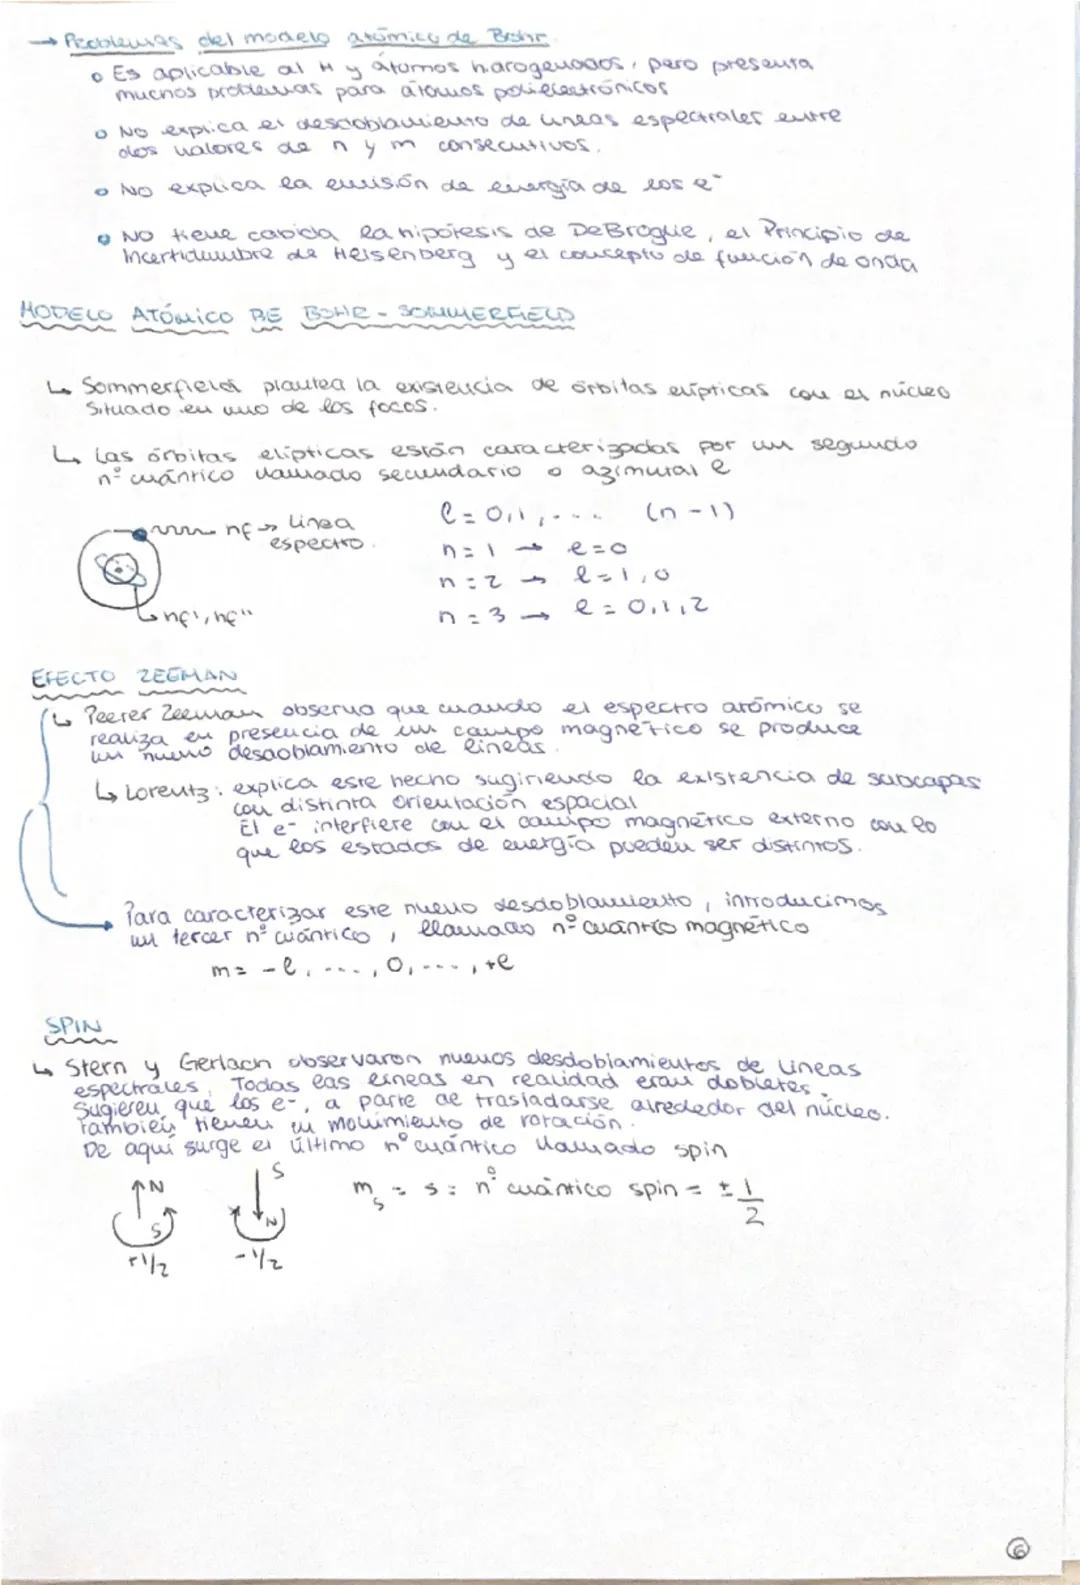 → Problemas del modelo atómico de Bohr
Es aplicable al H y átomos hidrogenados, pero presenta
muchos problemas para átomos polielectrónicos
No explica el desdoblamiento de líneas espectrales entre
dos valores de n y m consecutivos.
No explica la emisión de energía de los e⁻
No tiene cabida la hipótesis de DeBroglie, el Principio de
Incertidumbre de Heisenberg y el concepto de función de onda
MODELO ATÓMICO DE BOHR - SOMMERFIELD
↳ Sommerfield plantea la existencia de órbitas elípticas con el núcleo
situado en uno de los focos.
↳ Las órbitas elípticas están caracterizadas por un segundo
nº cuántico llamado secundario o azimutal l
nf → línea
espectro.
nf', nf''
l = 0,1,... (n-1)
n = 1 → l = 0
n = 2 → l = 1,0
n = 3 → l = 0,1,2
EFECTO ZEEMAN
↳ Peerer Zeeman observa que cuando el espectro atómico se
realiza en presencia de un campo magnético se produce
un nuevo desdoblamiento de líneas.
↳ Lorentz: explica este hecho sugiriendo la existencia de subcapas
con distinta orientación espacial
El e⁻ interfiere con el campo magnético externo con lo
que los estados de energía pueden ser distintos.
Para caracterizar este nuevo desdoblamiento, introducimos
un tercer nº cuántico, llamado nº cuántico magnético
m = -l, ..., 0, ..., +l
SPIN
↳ Stern y Gerlach observaron nuevos desdoblamientos de líneas
espectrales. Todas las líneas en realidad eran dobletes.
Sugieren que los e⁻, a parte de trasladarse alrededor del núcleo.
También tienen un movimiento de rotación.
De aquí surge el último nº cuántico llamado spin
N
S
+1/2
S
N
-1/2
mₛ = s = nº cuántico spin = ± 1/2
6